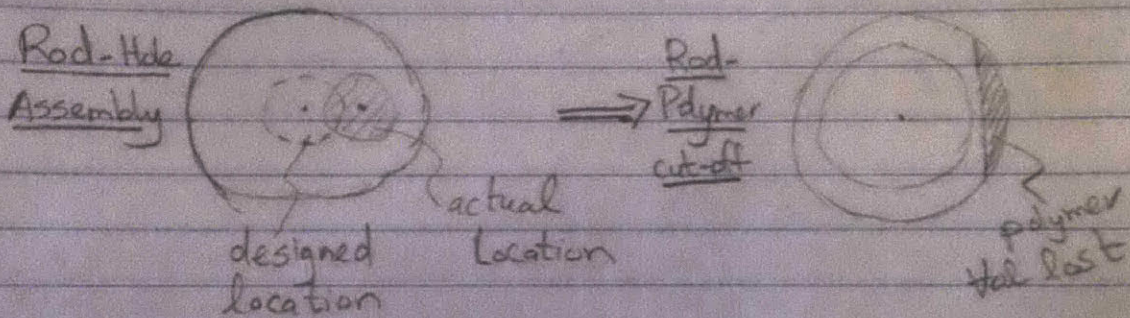 Rod-Hole
Assembly
designed
location
actual
Location
Rod-
Polymer
cut-off
polymer
Vol lost